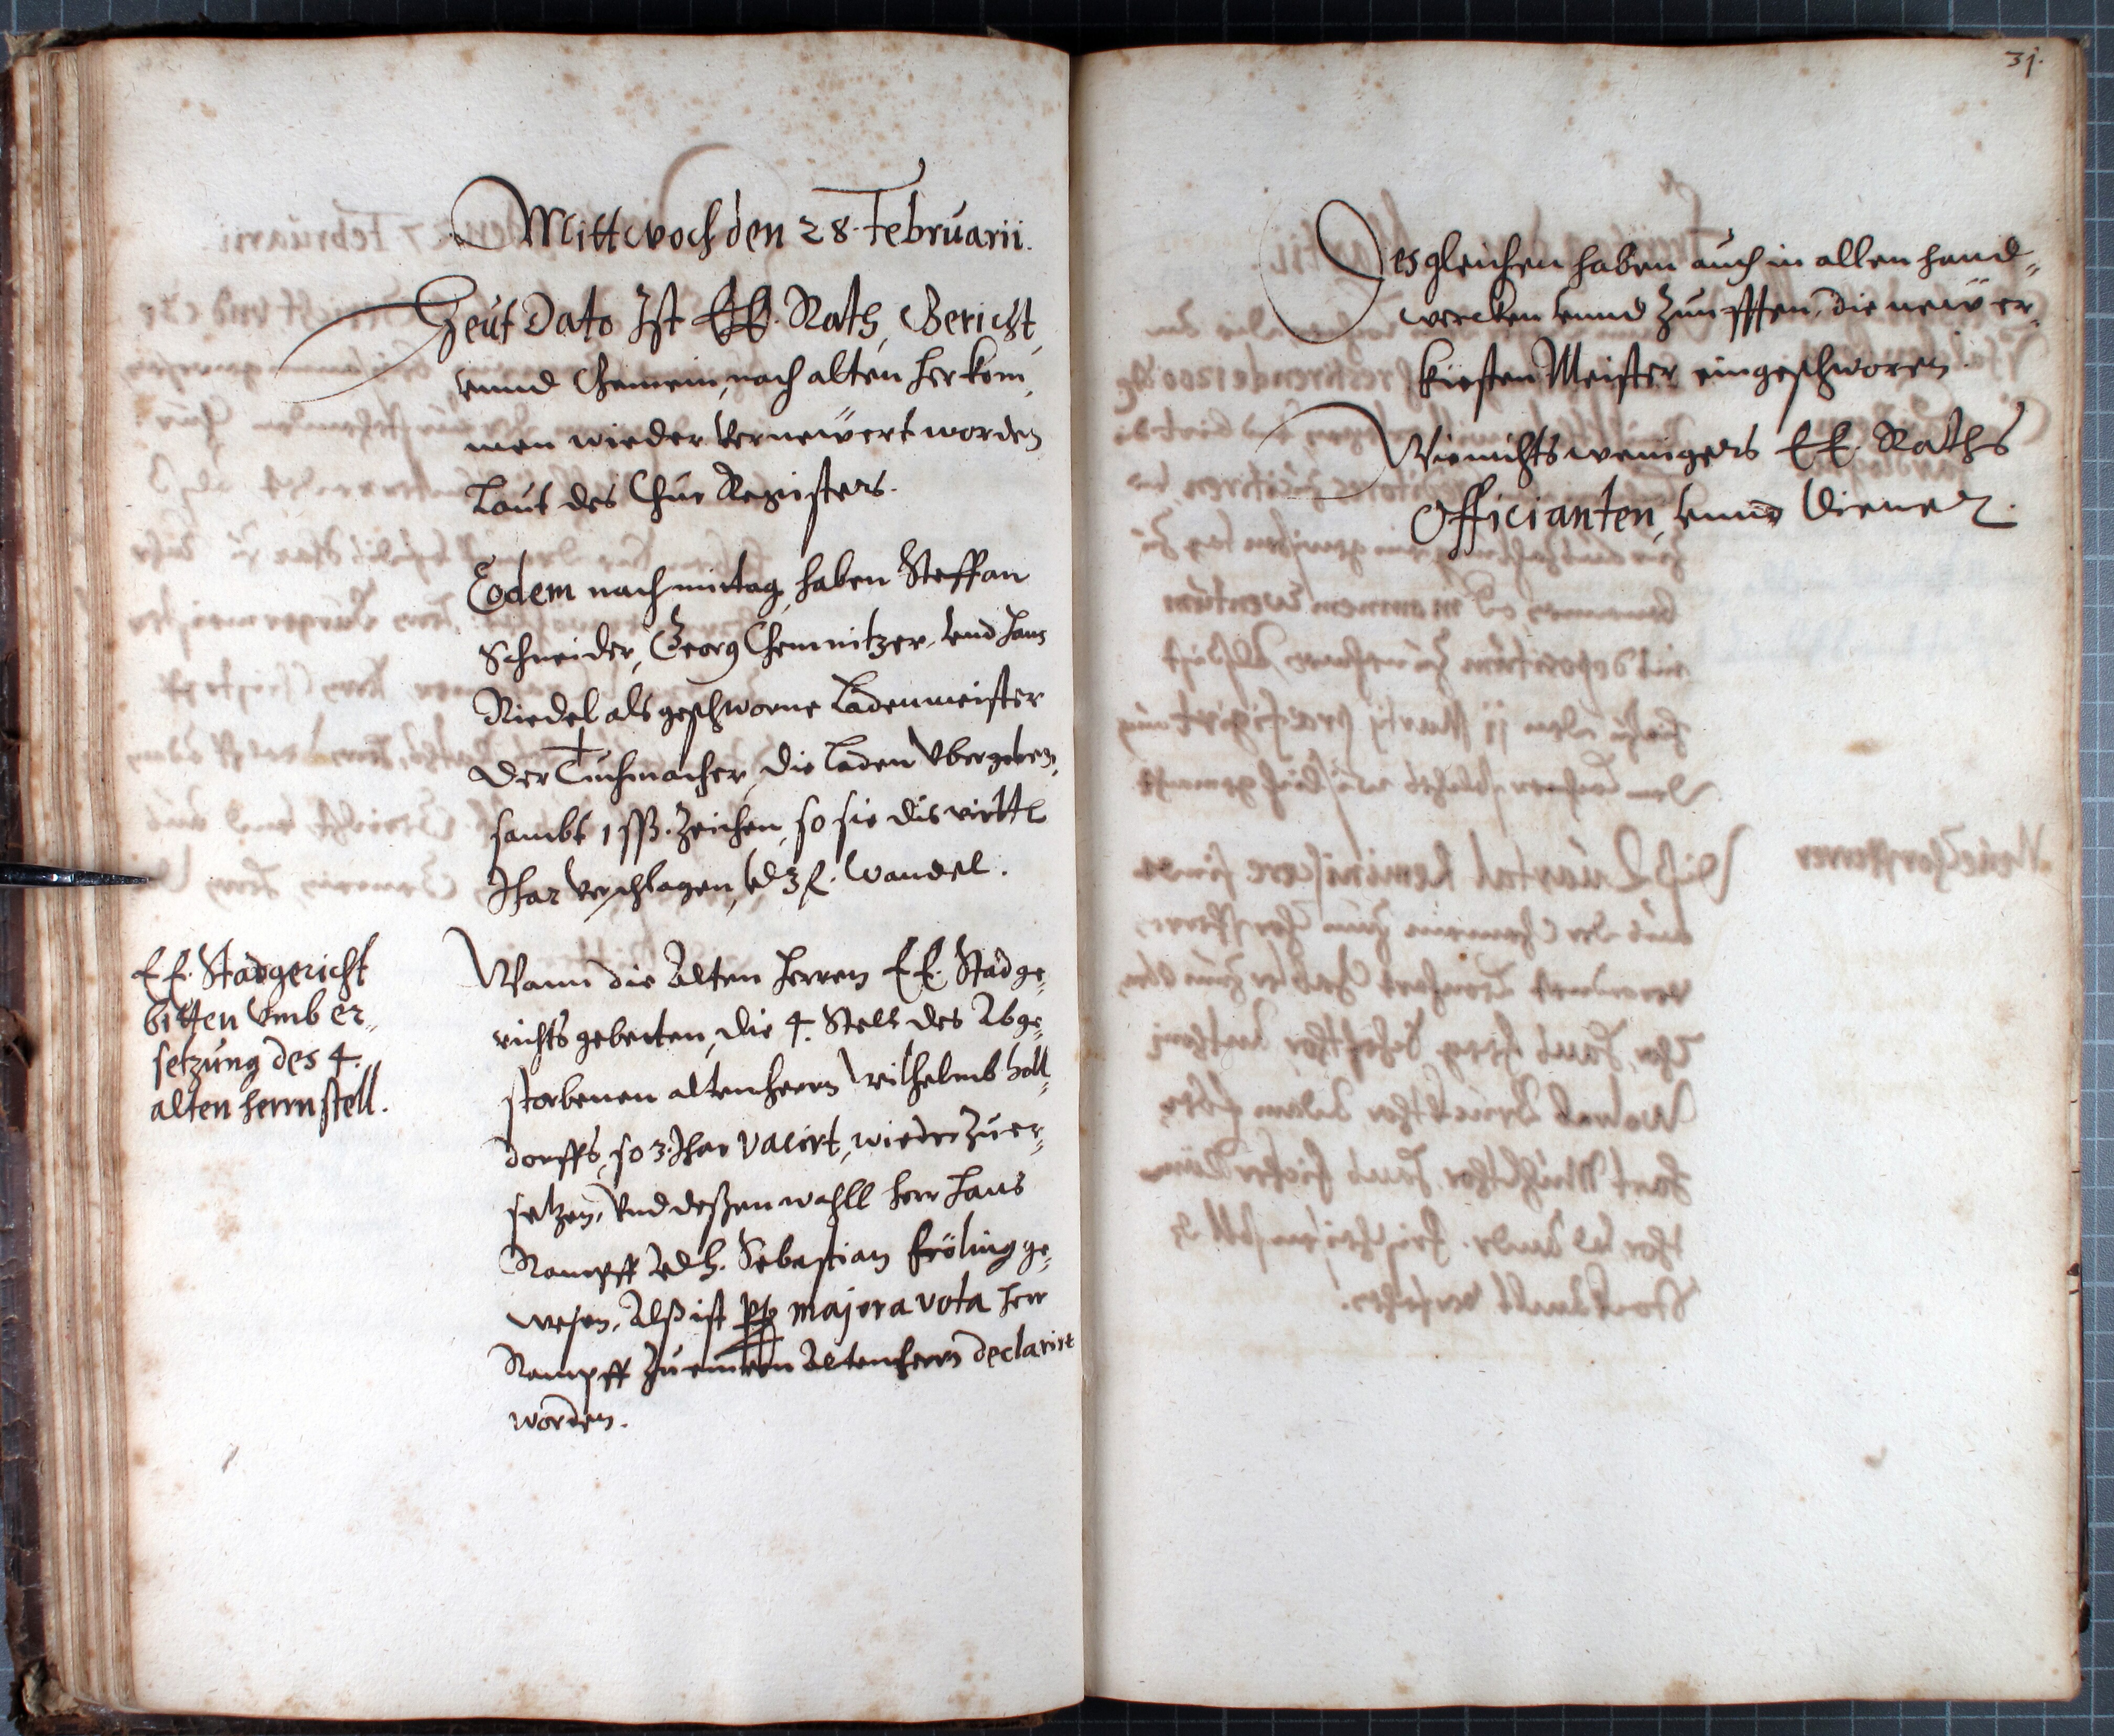 Mittwoch den 28. Februarii.
Heut Dato Ist EE. Rath, Gericht,
vnnd Gemein, nach alten herkom,
men wieder vernewert worden
Laut des Chur Registers.
Eodem nachmittag, haben Steffan
Schneider, Georg Chemnitzer, vnd Hans
Riedel als geschworne Ladenmeister
der Tuchmacher, die Laden vbergeben,
sambt 1 ßß. Zeichen, so sie dis virttl
Jhar verschlagen, vnd 3 f. Wandel.
E E. Stadgericht
bitten vmb er„
setzung des 4.
alten herrn stell.
Wann die Alten Herren E E. Stadge„
richts gebeten, die 4. Stell des Abge„
storbenen altenherrn Wilhelmb Holl„
dorffs, so 3. Jhar vacirt, wieder Zu er„
setzen, Vnd deßen wahll herr Hans
Rampff vnd h. Sebastian Fröling ge„
wesen, Alß ist per majora vota Herr
Rampff Zu einem Altenherrn declarirt
worden.
31.
Desgleichen haben auch in allen hand„
wercken vnnd Zunfften, die new er„
kiesten Meister eingeschworen.
Wie nichts wenigers E E. Raths
Officianten, vnnd Diener.